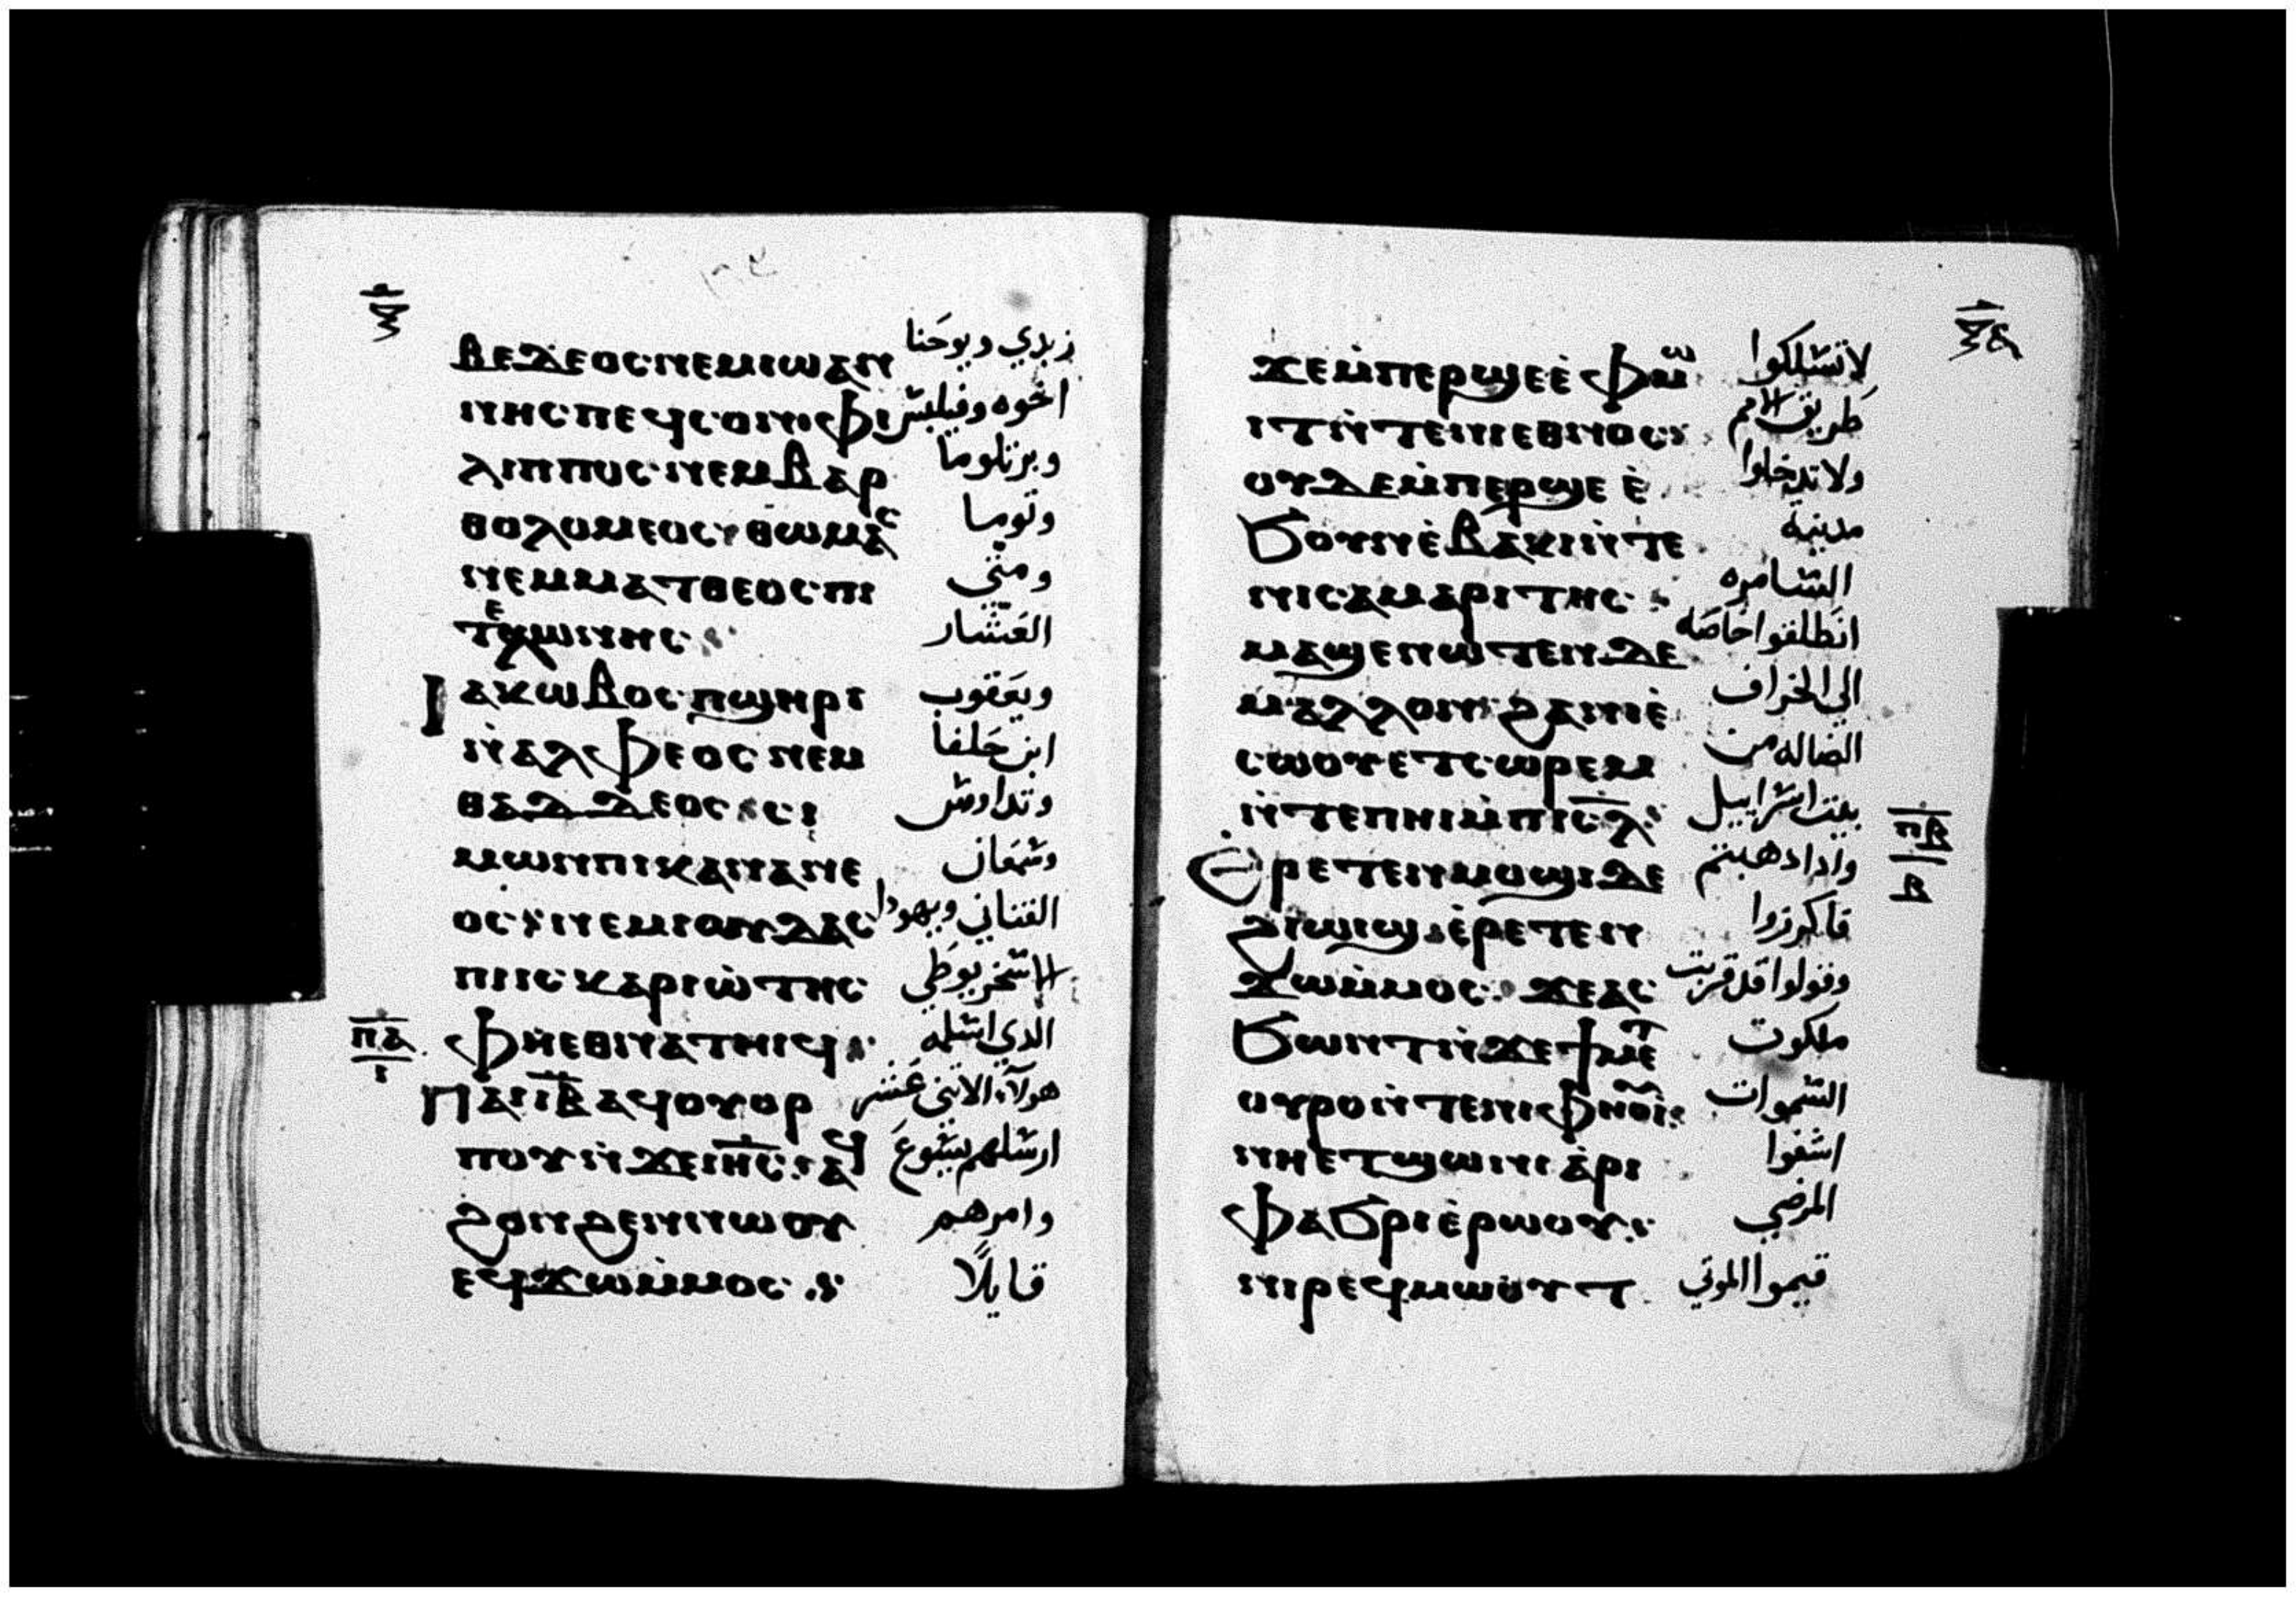 ⲝ̅
ⲃⲉⲇⲉⲟⲥ ⲛⲉⲙ ⲓⲱⲁⲛ زبدي ويوحنا
ⲛⲏⲥ ⲡⲉϥⲥⲟⲛ ⲫⲓ اخوه وفيلبس
ⲗⲓⲡⲡⲟⲥ ⲛⲉⲙ ⲃⲁⲣ وبرتلوما
ⲑⲟⲗⲟⲙⲉⲟⲥ ⲑⲱⲙⲁⲥ وتوما
ⲛⲉⲙ ⲙⲁⲧⲑⲉⲟⲥ ⲡⲓ ومتى
ⲧⲉⲗⲱⲛⲏⲥ العشار
ⲓⲁⲕⲱⲃⲟⲥ ⲡϣⲏⲣⲓ ويعقوب
ⲛ̀ⲁⲗⲫⲉⲟⲥ ⲛⲉⲙ ابن حلفا
ⲑⲁⲇⲇⲉⲟⲥ ⲥⲓ وتداوس
ⲙⲱⲛ ⲡⲓⲕⲁⲛⲁⲛⲉ وسمعان
ⲟⲥ ⲛⲉⲙ ⲓⲟⲩⲇⲁⲥ القناني ويهودا
ⲡⲓⲓⲥⲕⲁⲣⲓⲱ̀ⲧⲏⲥ الاسخريوطي
ⲡ̅ⲁ̅ ⲓ ⲫⲏⲉⲑⲛⲁⲧⲏⲓϥ الذي اسلمه
ⲡⲁⲓⲓ̅ⲃ̅ ⲁϥⲟⲩⲟⲣ هولاء الاثنى عشر
ⲡⲟⲩ ⲛ̀ϫⲉⲓⲏ̅ⲥ̅ ⲁϥ ارسلهم يسوع
ϩⲟⲛϩⲉⲛ ⲛⲱⲟⲩ وامرهم
ⲉϥϫⲱⲙ̀ⲙⲟⲥ قايلًا
ⲝ̅ⲁ̅
ϫⲉ ⲙ̀ⲡⲉⲣϣⲉ ⲉ̀ⲫⲙⲱ لا تسلكوا
ⲓⲧ ⲛ̀ⲧⲉ ⲛⲓⲉⲑⲛⲟⲥ طريق الامم
ⲟⲩⲇⲉ ⲙ̀ⲡⲉⲣϣⲉ ⲉ̀ ولا تدخلوا
ϭⲟⲩⲛ ⲉ̀ⲃⲁⲕⲓ ⲛ̀ⲧⲉ مدينة
ⲛⲓⲥⲁⲙⲁⲣⲓⲧⲏⲥ السامره
ⲙⲁϣⲉⲛⲱⲧⲉⲛ ⲇⲉ انطلقوا خاصه
ⲙⲁⲗⲗⲟⲛ ϩⲁ ⲛⲓⲉ̀ الي الخراف
ⲥⲱⲟⲩ ⲉⲧⲥⲱⲣⲉⲙ الضاله من
ⲛ̀ⲧⲉ ⲡⲏⲓ ⲙ̀ⲡⲓⲥ̅ⲗ̅ بيت اسراييل
ⲉⲣⲉⲧⲉⲛⲙⲟϣⲓ ⲇⲉ واذا ذهبتم ⲡ̅ⲃ̅ ⲃ
ϩⲓⲱⲓϣ ⲉ̀ⲣⲉⲧⲉⲛ فاكرزوا
ϫⲱⲙ̀ⲙⲟⲥ ϫⲉ ⲁⲥ وقولوا قد قربت
ϭⲱⲛⲧ ⲛ̀ϫⲉ ϯⲙⲉⲧ ملكوت
ⲟⲩⲣⲟ ⲛ̀ⲧⲉ ⲛⲓⲫⲏⲟⲩⲓ̀ السموات
ⲛⲏⲉⲧϣⲱⲛⲓ ⲁ̀ⲣⲓ اشفوا
ⲫⲁϭⲣⲓ ⲉ̀ⲣⲱⲟⲩ المرضي
ⲛⲓⲣⲉϥⲙⲱⲟⲩⲧ قيموا الموتي